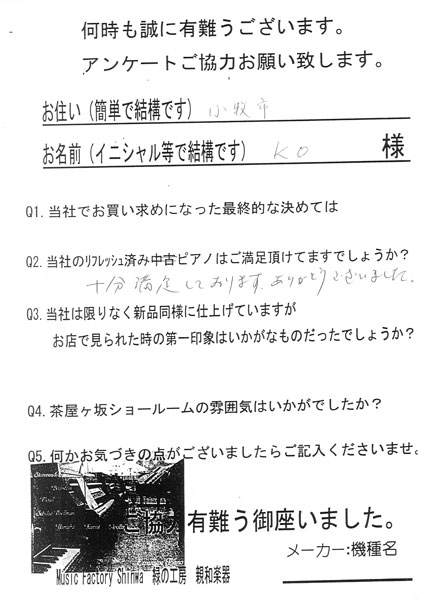 何時も誠に有難うございます。
アンケートご協力お願い致します。
お住い（簡単で結構です） 小牧市
お名前（イニシャル等で結構です） KO 様
Q1. 当社でお買い求めになった最終的な決めては
Q2. 当社のﾘﾌﾚｯｼｭ済み中古ピアノはご満足頂けてますでしょうか？
十分満足しております。ありがとうございました。
Q3. 当社は限りなく新品同様に仕上げていますが
お店で見られた時の第一印象はいかがなものだったでしょうか？
Q4. 茶屋ヶ坂ショールームの雰囲気はいかがでしたか？
Q5. 何かお気づきの点がございましたらご記入くださいませ。
ご協力有難う御座いました。
メーカー：機種名
Music Factory Shinwa 緑の工房 親和楽器